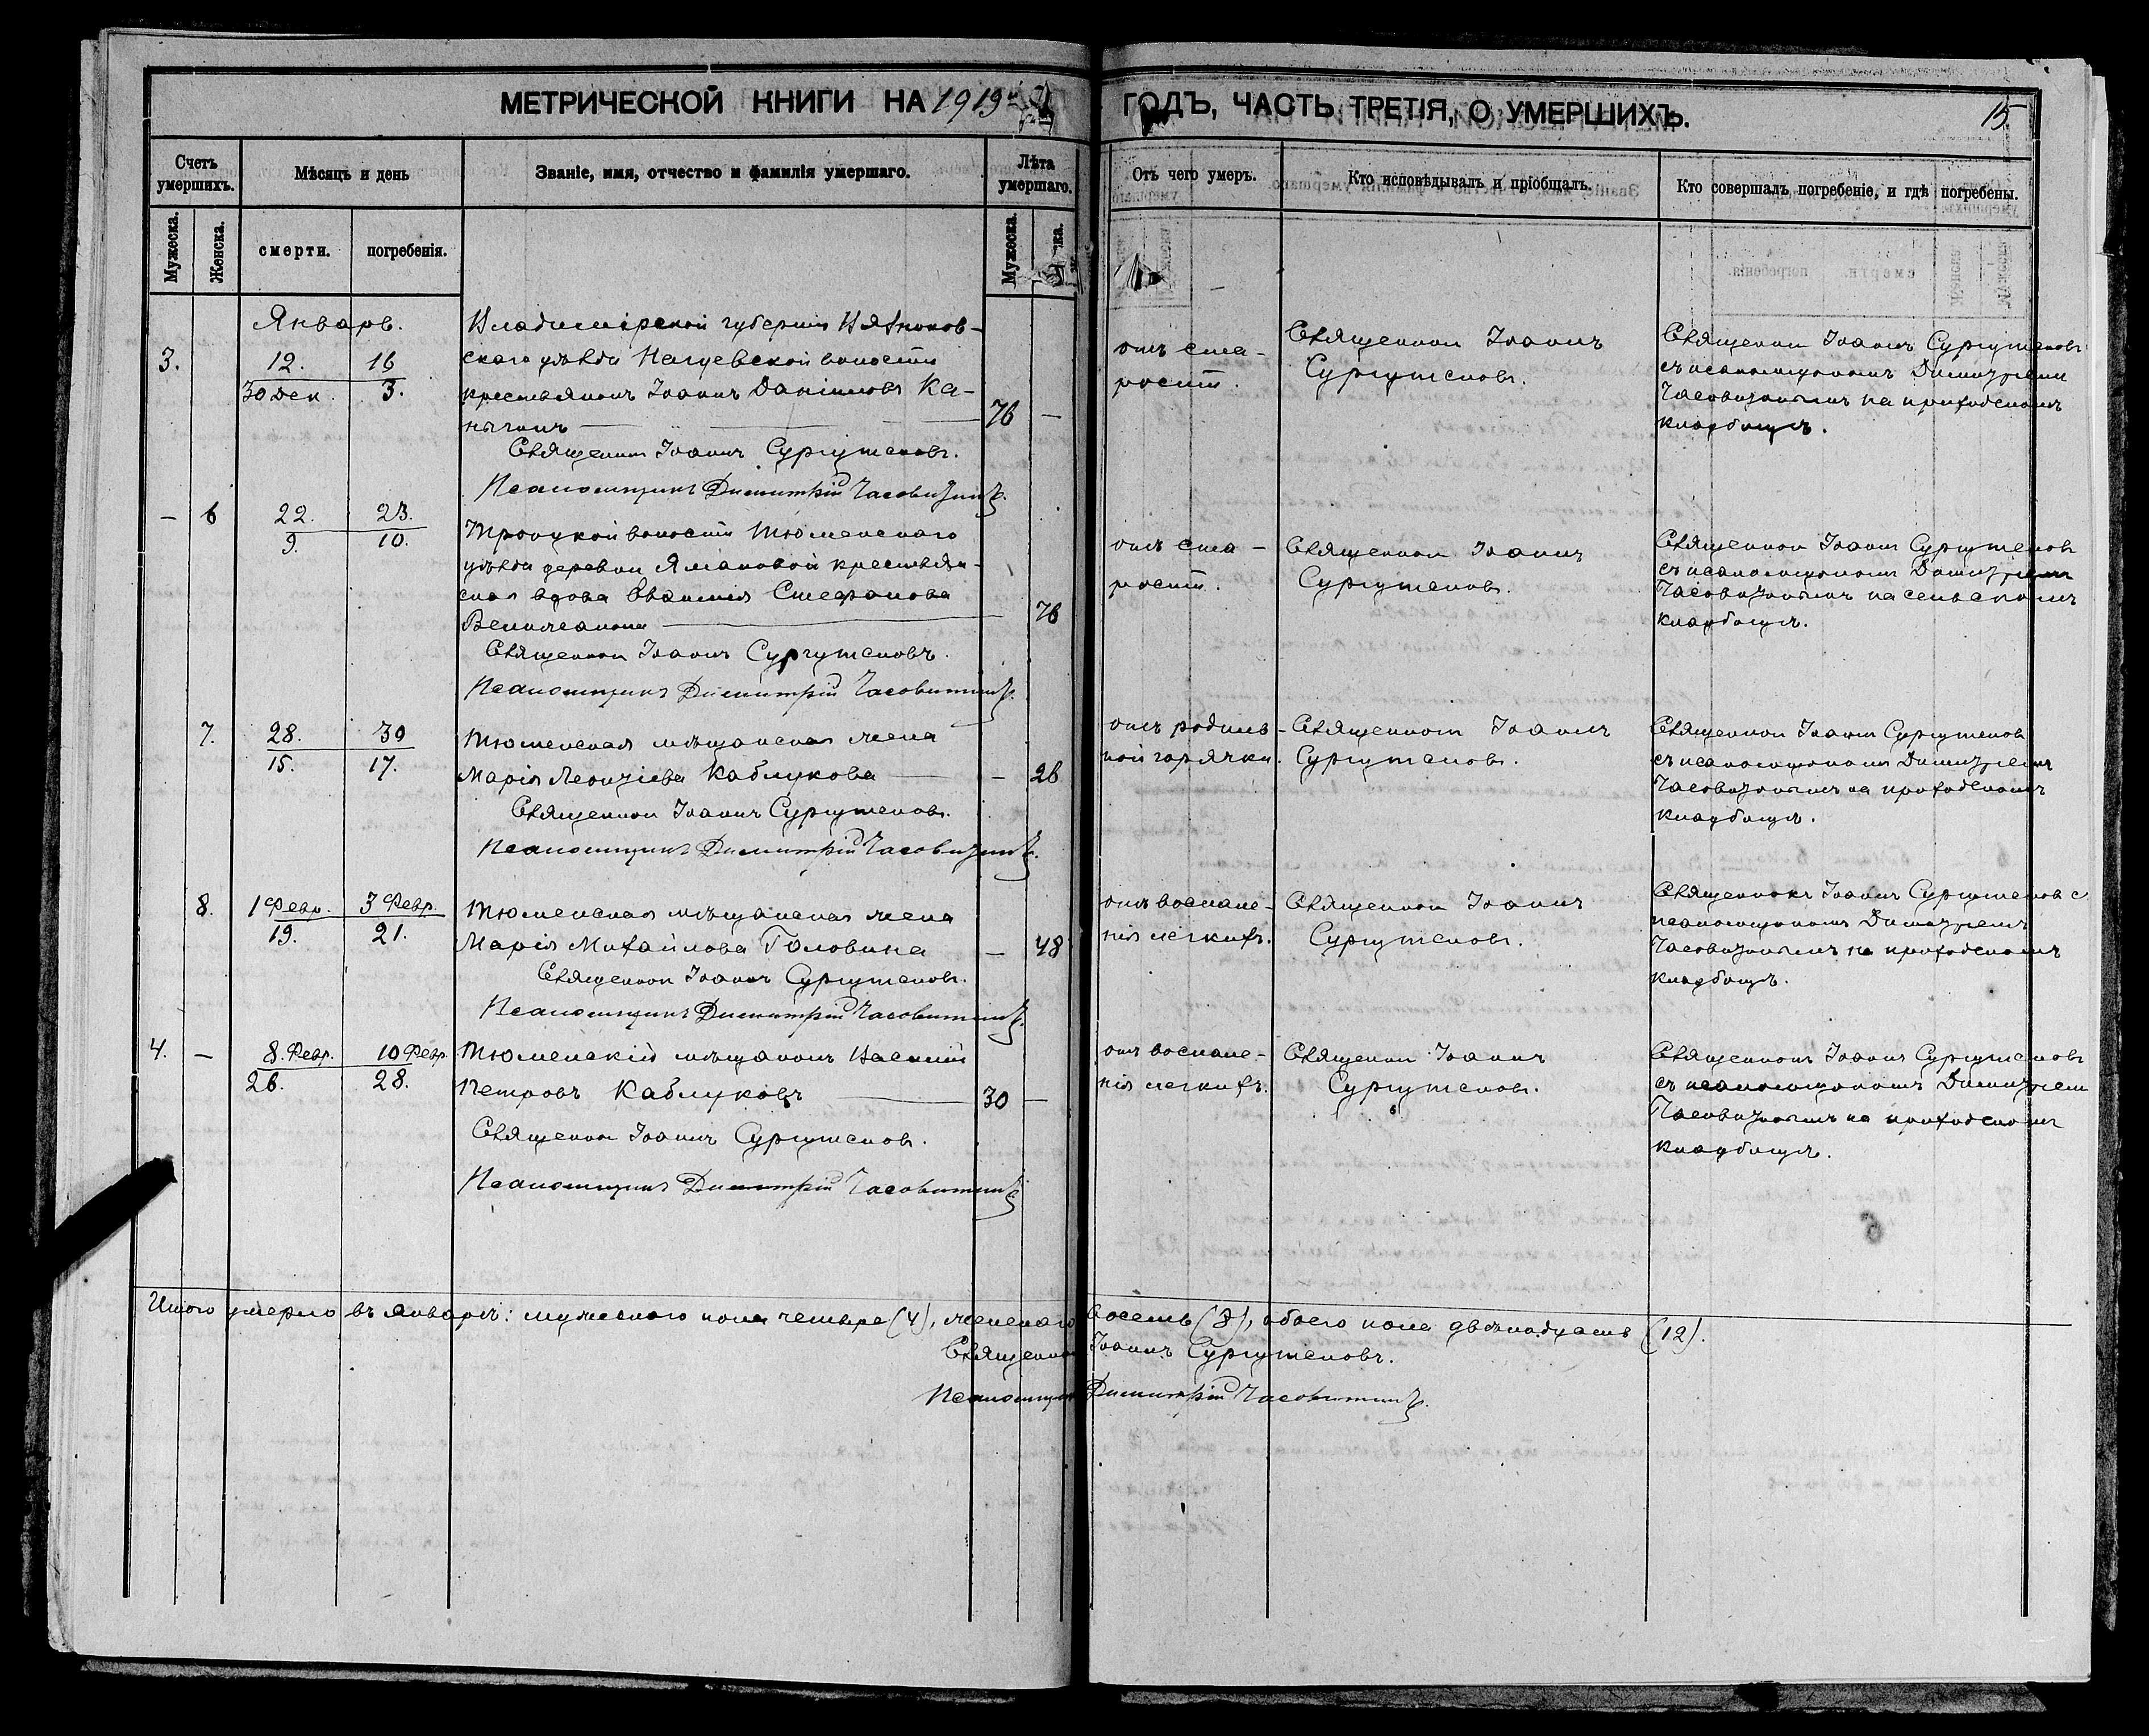 МЕТРИЧЕСКОЙ КНИГИ НА 1919й ГОДЪ, ЧАСТЬ ТРЕТІЯ, О УМЕРШИХЪ.
15.
Счетъ умершихъ.
Мѣсяцъ и день
Званіе, имя, отчество и фамилія умершаго.
Лѣта умершаго.
Отъ чего умеръ.
Кто исповѣдывалъ и пріобщалъ.
Кто совершалъ погребеніе, и гдѣ погребены.
Мужеска.
Женска.
смерти.
погребенія.
Мужеска.
Январь.
3.
12. 16
30 Дек. 3.
Владимірской губерніи
скаго уѣзда волости
крестьянинъ Іоаннъ Даніиловъ Ка-
76 —
Священник Іоаннъ Сургутсковъ.
Псаломщикъ Димитрій Часовитинъ.
отъ ста-
рости.
Священник Іоаннъ
Сургутсковъ.
Священник Іоаннъ Сургутсковъ
съ псаломщикомъ Димитріем
Часовитинымъ на приходскомъ
кладбищѣ.
— 6
22. 23.
9. 10.
Троицкой волости Тюменскаго
уѣзда деревни Ямановой крестьян-
ская вдова Стефанова
76
Священник Іоаннъ Сургутсковъ.
Псаломщикъ Димитрій Часовитинъ.
отъ ста-
рости.
Священник Іоаннъ
Сургутсковъ.
Священник Іоанн Сургутсков
съ псаломщиком Димитрием
Часовитинымъ на сельскомъ
кладбищѣ.
7.
28. 30
15. 17.
Тюменская мѣщанская жена
Марія Леонтіева Каблукова
— 26
Священник Іоаннъ Сургутсковъ.
Псаломщикъ Димитрій Часовитинъ.
отъ родиль-
ной горячки.
Священник Іоаннъ
Сургутсковъ.
Священник Іоанн Сургутсков
съ псаломщиком Димитрием
Часовитинымъ на приходскомъ
кладбищѣ.
8.
1 Февр. 3 Февр.
19. 21.
Тюменская мѣщанская жена
Марія Михайлова Головина
— 48
Священник Іоаннъ Сургутсковъ.
Псаломщикъ Димитрій Часовитинъ.
отъ воспале-
нія легкихъ.
Священник Іоаннъ
Сургутсковъ.
Священникъ Іоаннъ Сургутсков с
псаломщикомъ Димитрием
Часовитинымъ на приходскомъ
кладбищѣ.
4. —
8. Февр. 10 Февр.
26. 28.
Тюменскій мѣщанинъ Василій
Петровъ Каблуковъ
30 —
Священник Іоаннъ Сургутсковъ.
Псаломщикъ Димитрій Часовитинъ
отъ воспале-
нія легкихъ.
Священник Іоаннъ
Сургутсковъ.
Священникъ Іоаннъ Сургутсковъ
съ псаломщикомъ Димитріем
Часовитинымъ на приходскомъ
кладбищѣ.
Итого умерло въ январѣ: мужеского пола четыре (4), женскаго восемь (8), обоего пола двѣнадцать (12).
Священник Іоаннъ Сургутсковъ.
Псаломщик Димитрій Часовитинъ.